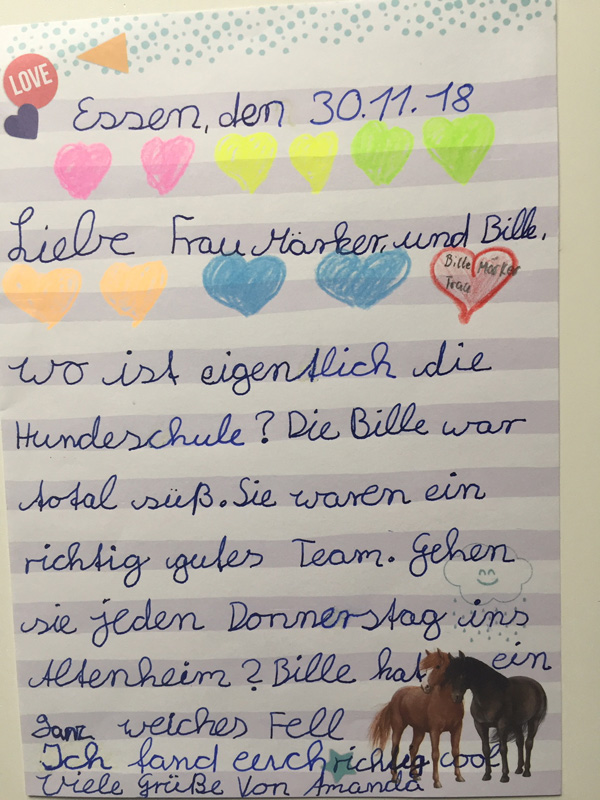 LOVE
Essen, den 30.11.18
Liebe Frau Märker, und Bille,
Bille Märker
Frau
wo ist eigentlich die
Hundeschule? Die Bille war
total süß. Sie waren ein
richtig gutes Team. Gehen
sie jeden Donnerstag ins
Altenheim? Bille hat ein
ganz weiches Fell
Ich fand euch richtig cool
Viele Grüße Von Amanda